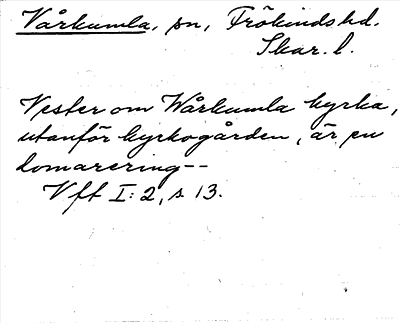 Vårkumla, sn, Frökinds hd.
Skar. l.
Vester om Wårkumla kyrka,
utanför kyrkogården, är en
domarering--
Vft I:2, s. 13.